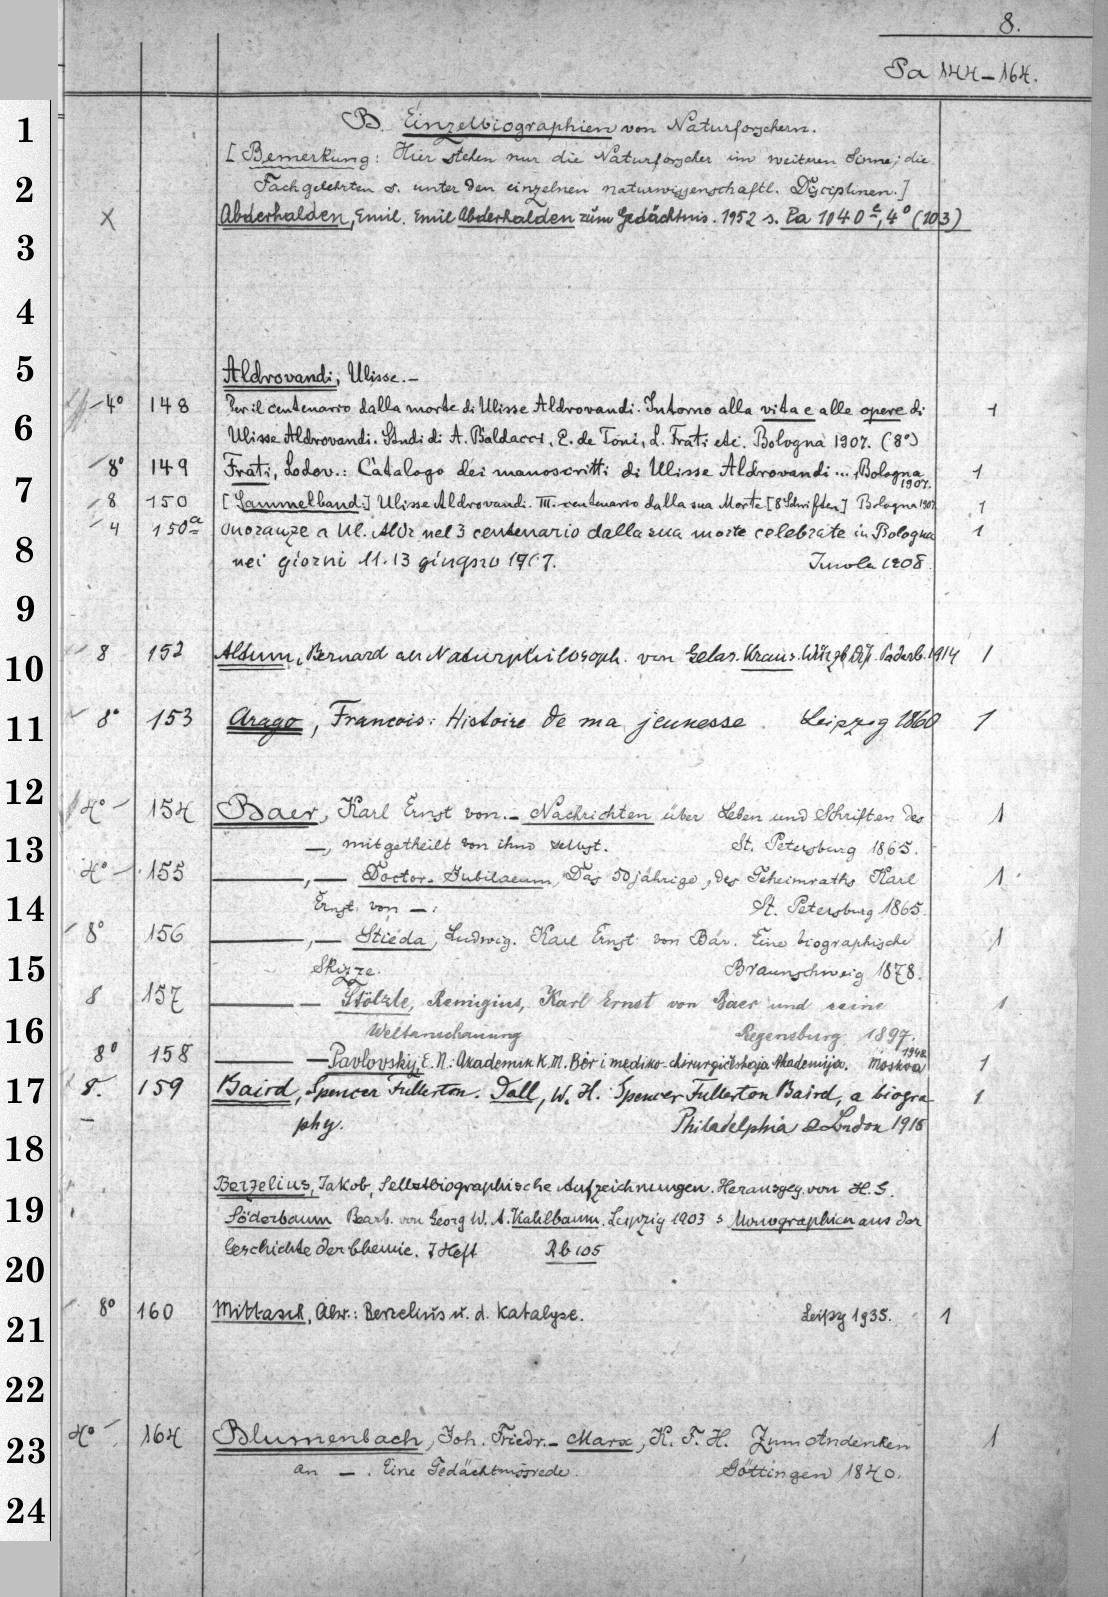 8.
Pa 144-164.
1
B. Einzelbiographien von Naturforschern.
[Bemerkung: Hier stehen nur die Naturforscher im weiteren Sinne; die
2
Fachgelehrten s. unter den einzelnen naturwissenschaftl. Disciplinen.]
X Abderhalden, Emil. Emil Abderhalden zum Gedächtnis. 1952 s. Pa 1040 c, 4° (103)
3
4
5
Aldrovandi, Ulisse.-
4° 148 Per il centenario dalla morte di Ulisse Aldrovandi. Intorno alla vita e alle opere di 1
6
Ulisse Aldrovandi. Studi di A. Baldacci, E. de Toni, L. Frati etc. Bologna 1907. (8°)
8° 149 Frati, Lodov.: Catalogo dei manoscritti di Ulisse Aldrovandi ..., Bologna 1907. 1
7
8 150 [Sammelband:] Ulisse Aldrovandi. III. centenario dalla sua Morte [8 Schriften] Bologna 1907 1
4 150a Onoranze a Ul. Aldr nel 3 centenario dalla sua morte celebrate in Bologna 1
8
nei giorni 11.13 giugno 1907. Imola 1908.
9
10
8 152 Altum, Bernard als Naturphilosoph. von Gelas. Kraus. Würzb Diss. Paderb. 1914 1
11
8° 153 Arago, Francois: Histoire de ma jeunesse. Leipzig 1860 1
12
4° 154 Baer, Karl Ernst von.- Nachrichten über Leben und Schriften des 1
13
—, mitgetheilt von ihm selbst. St. Petersburg 1865.
4° 155 —,— Doctor-Jubilaeum, Das 50jährige, des Geheimraths Karl 1
14
Ernst von —: St. Petersburg 1865.
8° 156 —,— Stieda, Ludwig. Karl Ernst von Bär. Eine biographische 1
15
Skizze. Braunschweig 1878.
8 157 — — Stölzle, Remigius, Karl Ernst von Baer und seine 1
16
Weltanschauung Regensburg 1897.
8° 158 — — Pavlovsky, E. N. Akademik K. M. Bèr i mediko-chirurgičeskaja Akademija. Moskva 1948 1
17
8°. 159 Baird, Spencer Fullerton. Dall, W. H. Spencer Fullerton Baird, a biogra- 1
phy. Philadelphia & London 1915
18
19
Berzelius, Jakob, Selbstbiographische Aufzeichnungen. Herausgeg. von H. S.
Söderbaum Bearb. von Georg W. A. Kahlbaum. Leipzig 1903 s Monographien aus der
Geschichte der Chemie. 7 Heft Rb 105
20
21
8° 160 Mittasch, Alw.: Berzelius u. d. Katalyse. Leipzg 1935. 1
22
23
4° 164 Blumenbach, Joh. Friedr.- Marx, K. F. H. Zum Andenken 1
an —. Eine Gedächtnissrede. Göttingen 1840.
24